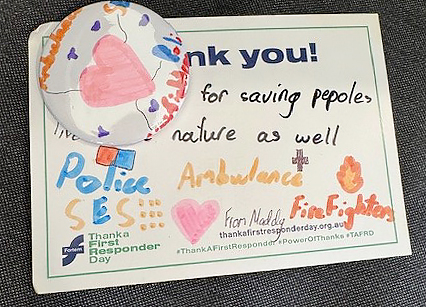 nk you!
for saving pepoles
nature as well
Police Ambulance
SES Fire Fighters
From Maddy
Fortem
Thank a
First
Responder
Day
thankafirstresponderday.org.au
#ThankAFirstResponder #PowerOfThanks #TAFRD